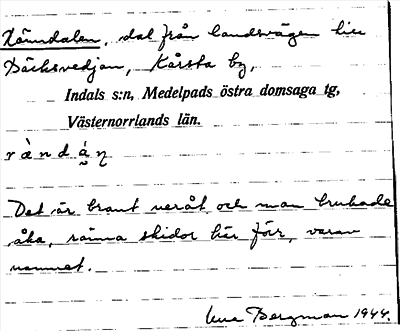 Ränndalen, dal från landsvägen till
Bäcksvedjan, Kårsta by,
Indals s:n, Medelpads östra domsaga tg,
Västernorrlands län.
r à n d á ŋ
Det är brant neråt och man brukade
åka, ränna skidor här förr, varav
namnet.
Bergman 1944.